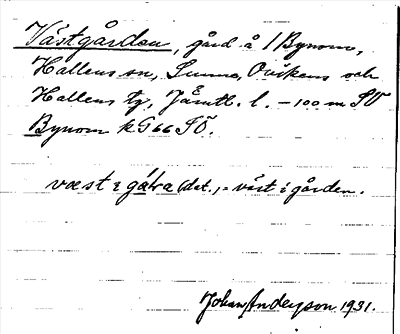 Västgården, gård å 1 Bynom,
Hallens sn, Sunne, Ovikens och
Hallens tg, Jämtl. l. – 100 m SV
Bynom kG66 SÖ.
væst i gáṙa (dat., = väst i gården.
Johan Anderson 1931.